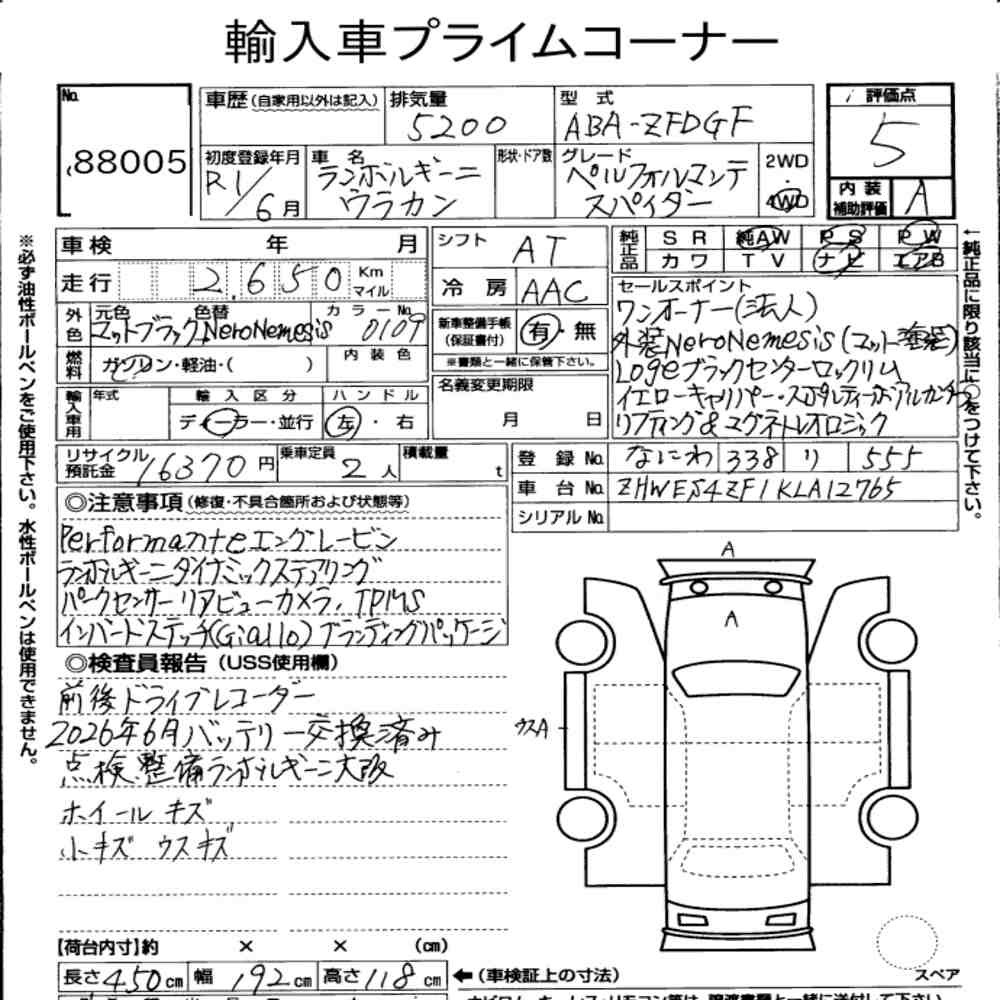 輸入車プライムコーナー
No.
88005
車歴(自家用以外は記入)
排気量
5200
型 式
ABA-ZFDGF
評価点
5
初度登録年月
R1/6月
車 名
ランボルギーニ
ウラカン
形状・ドア数
グレード
ペルフォルマンテ
スパイダー
2WD
・
4WD
内 装
補助評価
A
車検 年 月
シフト AT
純正品
SR 純AW PS PW
カワ TV ナビ エアB
走行 2,650 Km マイル
冷房 AAC
セールスポイント
ワンオーナー(法人)
外装NeroNemesis(マット塗装)
Logeブラックセンターロックリム
イエローキャリパー・スポルティーボアルカンターラ
リフティング&マグネトレオロジック
外色 元色 色替 カラーNo.
マットブラックNeroNemesis 0109
新車整備手帳
(保証書付)
有・無
※書類と一緒に保管下さい。
燃料 ガソリン・軽油・( )
内装色
名義変更期限
月 日
輸入車用 年式 輸入区分 ハンドル
ディーラー・並行 左・右
リサイクル
預託金 16370円
乗車定員 2人
積載量 t
登録No. なにわ 338 り 555
車台No. ZHWES4ZF1KLA12765
シリアルNo.
◎注意事項(修復・不具合箇所および状態等)
Performanteエングレービン
ランボルギーニダイナミックステアリング
パークセンサー リアビューカメラ、TPMS
インバードステッチ(Giallo)ブランディングパッケージ
◎検査員報告(USS使用欄)
前後ドライブレコーダー
2026年6月バッテリー交換済み
点検整備ランボルギーニ大阪
ホイールキズ
小キズ ウスキズ
A
A
ウスA
【荷台内寸】約 × × (cm)
長さ450cm 幅192cm 高さ118cm
←(車検証上の寸法)
スペア
※必ず油性ボールペンをご使用下さい。水性ボールペンは使用できません。
←純正品に限り該当に○をつけて下さい。